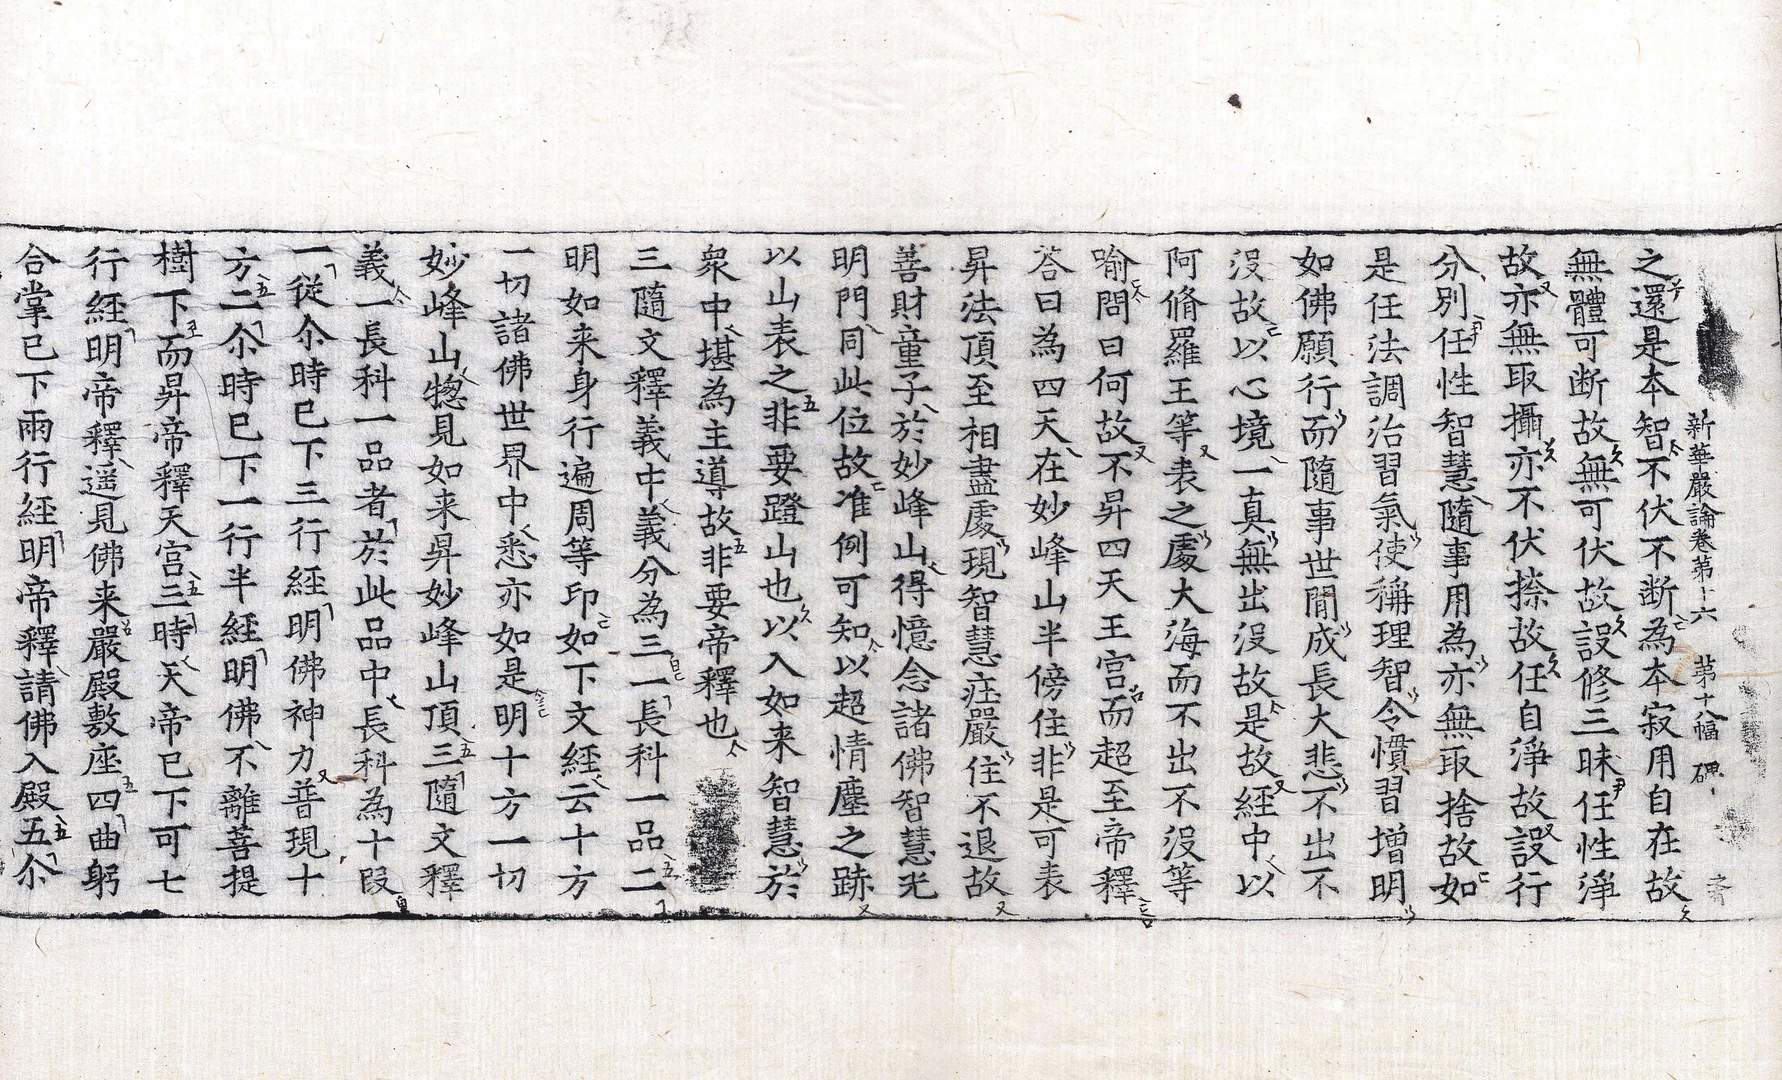 新華嚴論卷第十六 第十八幅 碑
之還是本智不伏不断為本寂用自在故
無體可断故無可伏故設修三昧任性淨
故亦無取攝亦不伏捺故任自淨故設行
分別任性智慧隨事用為亦無取捨故如
是任法調治習氣使稱理智令慣習增明
如佛願行而隨事世間成長大悲不出不
没故以心境一真無出没故是故經中以
阿脩羅王等表之處大海而不出不没等
喻問曰何故不昇四天王宫而超至帝釋
荅曰為四天在妙峰山半傍住非是可表
昇法頂至相盡處現智慧疰嚴住不退故
善財童子於妙峰山得憶念諸佛智慧光
明門同此位故准例可知以超情塵之跡
以山表之非要蹬山也以入如来智慧於
衆中堪為主導故非要帝釋也
三隨文釋義中義分為三一長科一品二
明如来身行遍周等印如下文經云十方
一切諸佛世界中悉亦如是明十方一切
妙峰山㹅見如来昇妙峰山頂三隨文釋
義一長科一品者於此品中長科為十段
一從尒時已下三行經明佛神力普現十
方二尒時已下一行半經明佛不離菩提
樹下而昇帝釋天宫三時天帝已下可七
行經明帝釋遥見佛来嚴殿敷座四曲躬
合掌已下兩行經明帝釋請佛入殿五尒